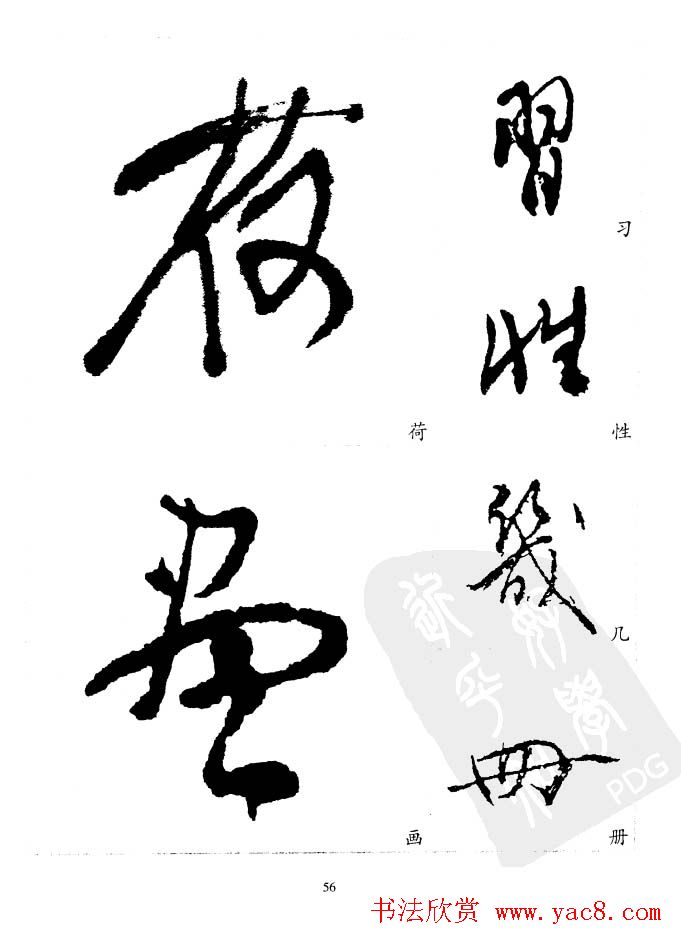 習
习
性
性
幾
几
册
册
荷
荷
畫
画
PDG
56
书法欣赏 www.yac8.com